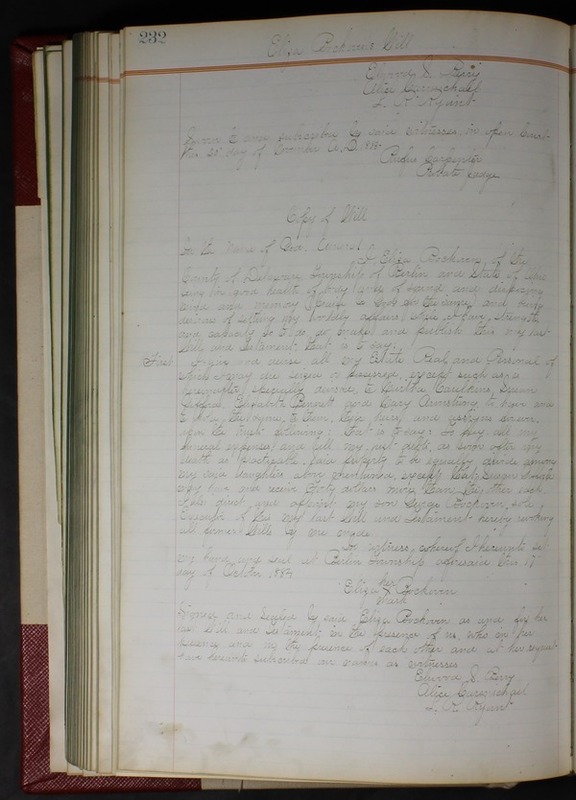 232
Eliza Cockurn's Will
S. Perry
Alice Carmichael
L. R. Ryant
Sworn to and subscribed by said witnesses in open Court
this 30 day of December A.D. 1885
Rufus Carpenter
Probate Judge
Copy of Will
In the Name of God, Amen!
I, Eliza Cockurn, of the
County of Delaware, Township of Berlin and State of Ohio
being in good health of body and of sound and disposing
mind and memory (praise be to God for the same) and being
desirous of settling my worldly affairs while I have strength
and capacity so to do, do make and publish this my last
Will and Testament, that is to say:
First I give and devise all my Estate Real and Personal of
which I may die or possessed, except such as is
hereinafter specially to Martha Caulkins, Susan
Elizabeth Bennett and Mary Armstrong to have and
to hold, the same, to them, their heirs and assigns forever
upon the trust following: That is to say: to pay all my
funeral expenses, and all my just debts, as soon after my
death as practicable, said property to be equally divided among
my said daughters above mentioned, except that Susan
may have and receive forty dollars more than the other each
I also direct and appoint my son George Cockurn, sole
Executor of this my last Will and Testament hereby revoking
all former Wills by me made
In witness, whereof I hereunto set
my hand and seal at Berlin Township aforesaid this 17
day of October 1884
her
Eliza Cockurn
mark
Signed and Sealed by said Eliza Cockurn as and for her
last Will and Testament, in the presence of us, who in her
presence and in the presence of each other and at her request
have hereunto subscribed our names as witnesses
S. Perry
Alice Carmichael
L. R. Ryant